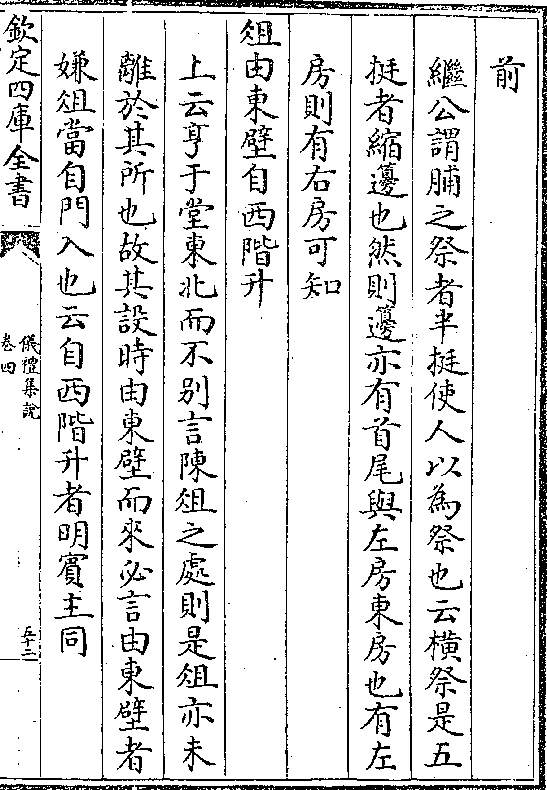 前
繼公謂脯之祭者半挺使人以為祭也云橫祭是五
挺者縮籩也然則籩亦有首尾與左房東房也有左
房則有右房可知
俎由東壁自西階升
上云亨于堂東北而不别言陳俎之處則是俎亦未
離於其所也故其設時由東壁而來必言由東壁者
嫌俎當自門入也云自西階升者明賓主同
欽定四庫全書
儀禮集說
卷四